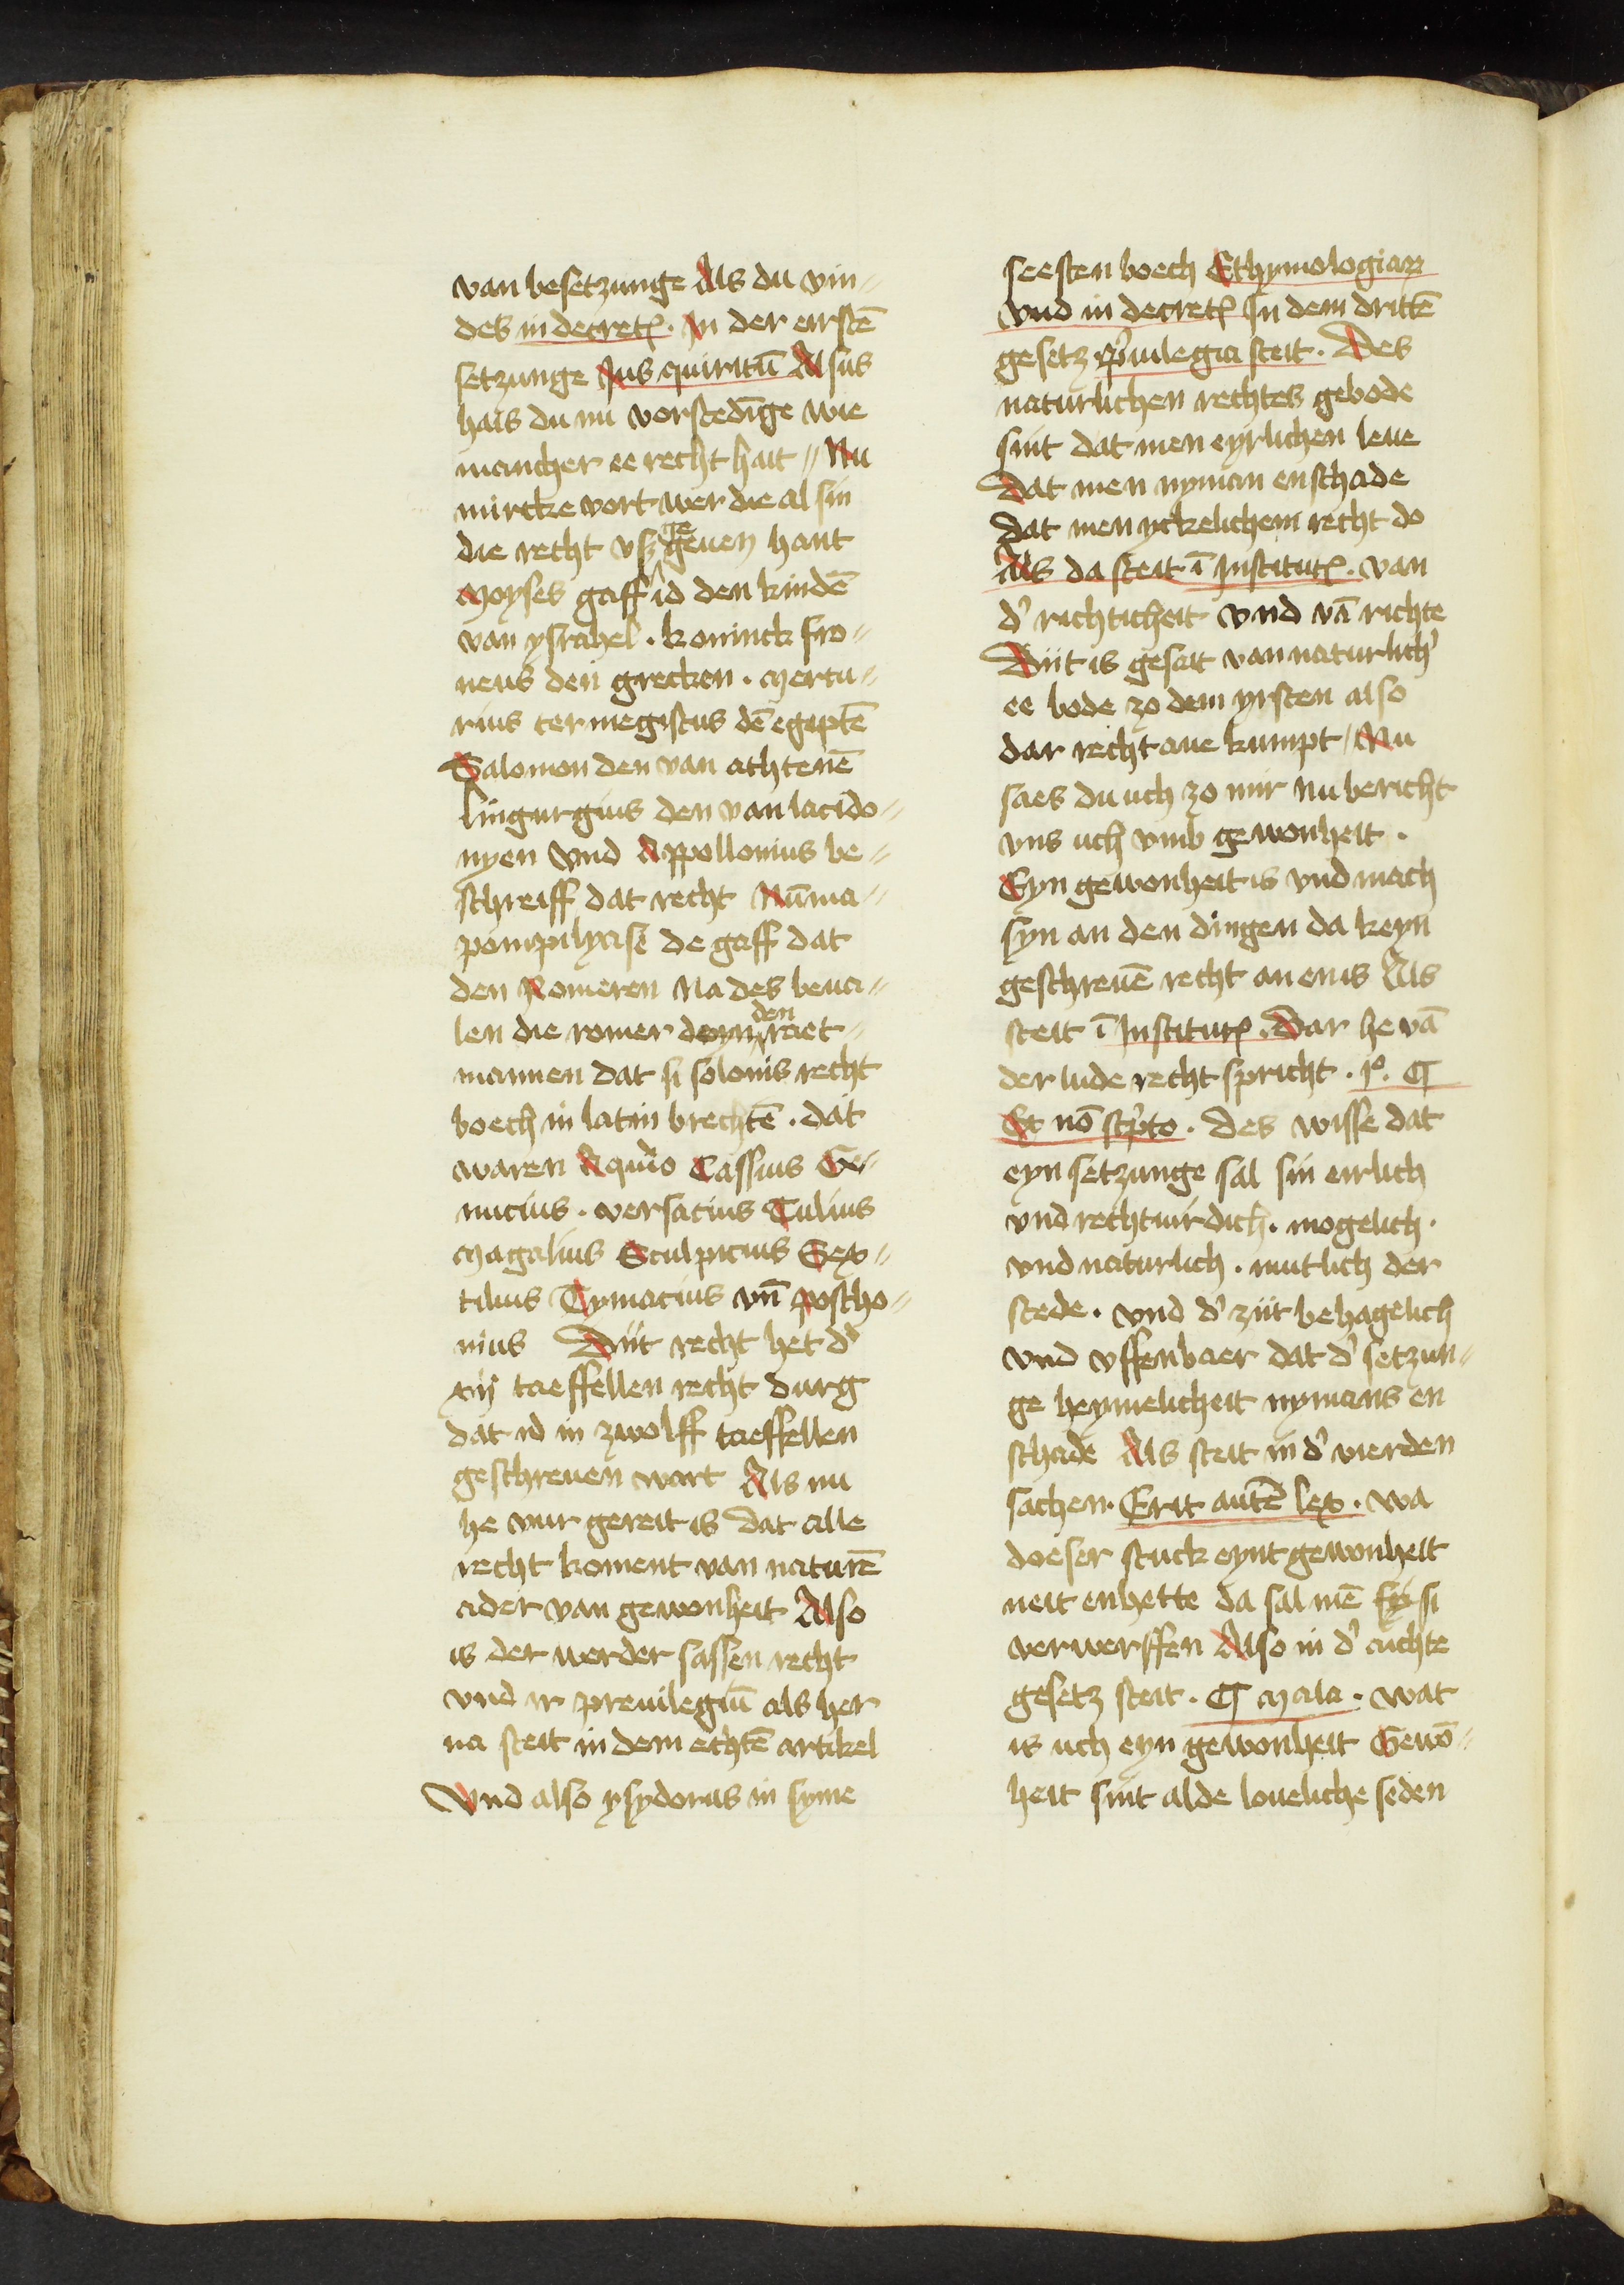 van besetzunge Als du vin⸗
des in decret(is). In der eirstē
setzunge Jus quiritū Alsus
hais du nu vorstedīge wie
mancher ee recht hait // Nu
mircke vort wer die al sin
die recht vß gegeuen hant
Moyses gaff id den kindē
van ysrahel. koninck fro⸗
neus den grecken. Mercu⸗
rius termegistus dē egiptē
Salomon den van athtenē
lingurgius den van lacido⸗
nyen Vnd Appollonius be⸗
schreiff dat recht Nūma⸗
pompilyasē de gaff dat
den Romeren Na des beua⸗
len die romer doyn den raet⸗
mannen dat si solonis recht
boech in latin brechtē. dat
waren Aquirio Cassius Ge⸗
nucius. versacius Tulius
Magalius Sculpicius Sex⸗
tilius Tymacius vn̄ postho⸗
nius Diit recht het d'
xij taeffellen recht durg
dat id in zwolff taeffellen
geschreuen wart Als nu
he vur gereit is dat alle
recht koment van naturē
ader van gewonheit Also
is der werder sassen recht
vnd ir preuilegiū als her
na steit in dem echtē artikel
Vnd also ysydorus in syme
seesten boech Ethymologiaꝝ
Vnd in decret(is) In dem drittē
gesetz p'uilegia steit. Des
naturlichen rechtes gebode
sint dat men eyrlichen leue
Dat men nyman enschade
Dat men yckelichem recht do
Als da steit ī Institut(is). van
d' richticheit vnd vā richte
Diit is gesait van naturlich'
ee bode zo dem yrsten also
dar recht aue kumpt / Nu
saes du uch zo mir Nu bericht
vns uch vmb gewonheit.
Eyn gewonheit is vnd mach
syn an den dingen da keyn
geschreuē recht an en is Als
steit ī Institut(is). Dar he vā
der lude recht spricht. jº. ¶
Ex nō sc'pto. Des wisse dat
eyn setzunge sal sin eirlich
vnd rechtuirdich. mogelich.
vnd naturlich. nutlich der
stede. vnd d' ziit behagelich
vnd vffenbaer dat d' setzun⸗
ge heymelicheit nymans en
schade Als steit in d' vierden
sachen. Erit autē lex. wa
doeser stuck eynt gewonheit
neit enhette da sal mē si
verwerffen Also in d' achte
gesetz steit. ¶ Mala. wat
is uch eyn gewonheit Gewō⸗
heit sint alde loueliche seden